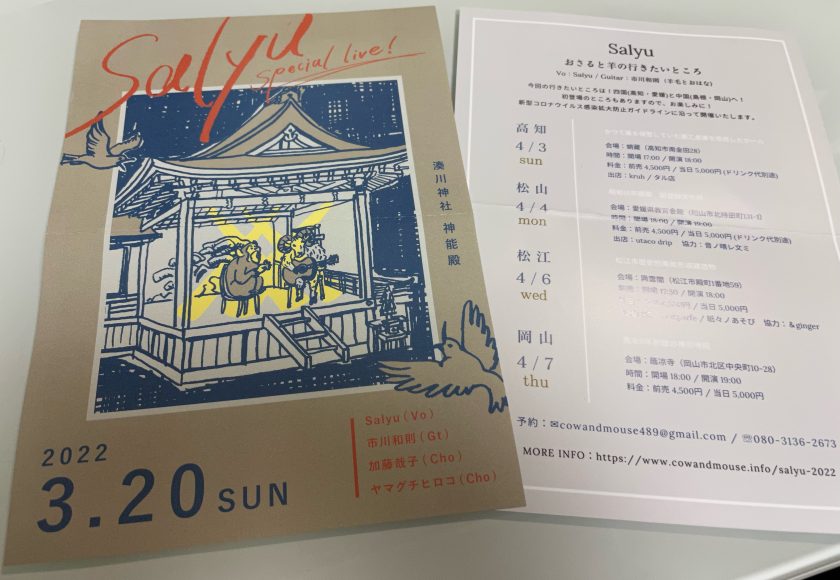 Salyu
Special live!
湊川神社 神能殿
Salyu (Vo)
市川和則 (Gt)
加藤哉子 (Cho)
ヤマグチヒロコ (Cho)
2022
3.20 SUN
Salyu
おさると羊の行きたいところ
Vo : Salyu / Guitar : 市川和則 (羊毛とおはな)
今回の行きたいところは！四国(高知・愛媛)と中国(島根・岡山)へ！
初登場のところもありますので、お楽しみに！
新型コロナウイルス感染拡大防止ガイドラインに沿って開催いたします。
高知
4/3
sun
会場：蛸蔵（高知市南金田28）
時間：開場 17:00 / 開演 18:00
料金：前売 4,500円 / 当日 5,000円 (ドリンク代別途)
出店：kruh / タル店
松山
4/4
mon
会場：愛媛県教育会館（松山市北持田町131-1）
時間：開場 18:00 / 開演 19:00
料金：前売 4,500円 / 当日 5,000円 (ドリンク代別途)
出店：utaco drip 協力：音ノ喰レ文ミ
松江
4/6
wed
会場：興雲閣（松江市殿町1番地59）
開場 17:30 / 開演 18:00
/ 当日 5,000円
/ 紙々ノあそび 協力：＆ginger
岡山
4/7
thu
会場：蔭凉寺（岡山市北区中央町10-28）
時間：開場 18:00 / 開演 19:00
料金：前売 4,500円 / 当日 5,000円
予約：✉cowandmouse489@gmail.com / ☏080-3136-2673
MORE INFO：https://www.cowandmouse.info/salyu-2022